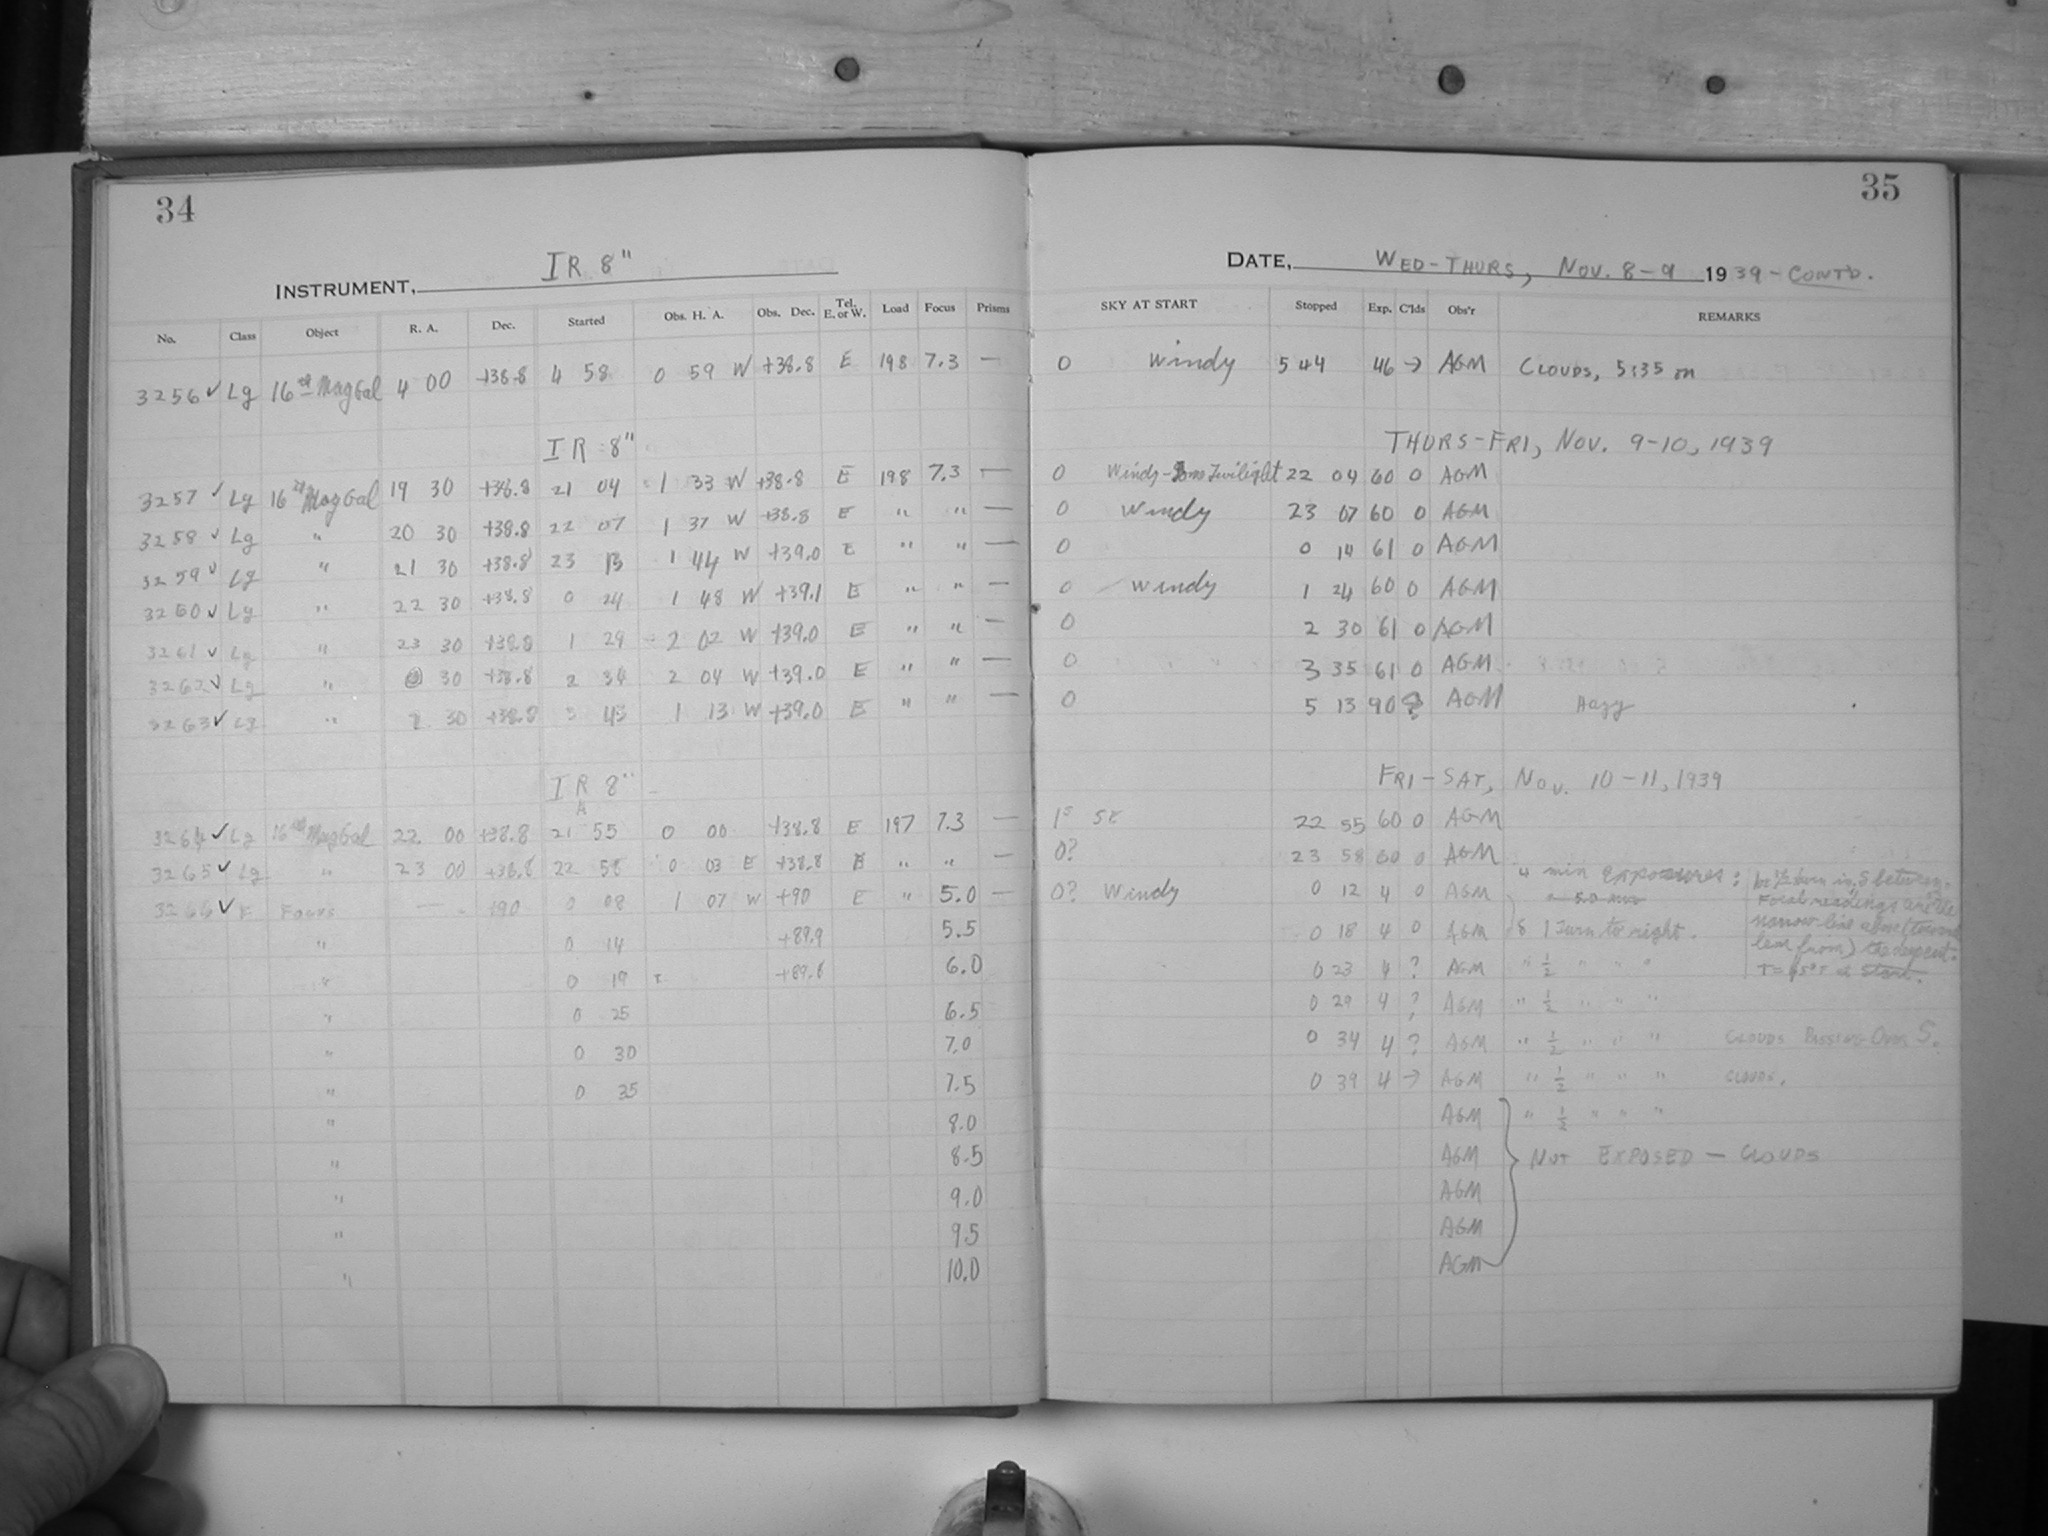 34
INSTRUMENT, IR 8"
No. Class Object R. A. Dec. Started Obs. H. A. Obs. Dec. Tel. E. or W. Load Focus Prisms
3256 ✓ Lg 16th Mag Gal 4 00 +38.8 4 58 0 59 W +38.8 E 198 7.3 —
IR 8"
3257 ✓ Lg 16th Mag Gal 19 30 +38.8 21 04 1 33 W +38.8 E 198 7.3 —
3258 ✓ Lg " 20 30 +38.8 22 07 1 37 W +38.8 E " " —
3259 ✓ Lg " 21 30 +38.8 23 13 1 44 W +39.0 E " " —
3260 ✓ Lg " 22 30 +38.8 0 24 1 48 W +39.1 E " " —
3261 ✓ Lg " 23 30 +38.8 1 29 2 02 W +39.0 E " " —
3262 ✓ Lg " 0 30 +38.8 2 34 2 04 W +39.0 E " " —
3263 ✓ Lg " 2 30 +38.8 3 43 1 13 W +39.0 E " " —
IR 8"
A
3264 ✓ Lg 16th Mag Gal 22 00 +38.8 21 55 0 00 +38.8 E 197 7.3 —
3265 ✓ Lg " 23 00 +38.8 22 58 0 03 E +38.8 E " " —
3266 ✓ F Focus — +90 0 08 1 07 W +90 E " 5.0 —
" 0 14 +89.9 5.5
" 0 19 +89.8 6.0
" 0 25 6.5
" 0 30 7.0
" 0 35 7.5
" 8.0
" 8.5
" 9.0
" 9.5
" 10.0
35
DATE, WED-THURS, NOV. 8-9 1939-CONT'D.
SKY AT START Stopped Exp. C'lds Obs'r REMARKS
0 Windy 5 44 46 → AGM CLOUDS, 5:35 on
THURS-FRI, NOV. 9-10, 1939
0 Windy - Some Twilight 22 04 60 0 AGM
0 Windy 23 07 60 0 AGM
0 0 14 61 0 AGM
0 Windy 1 24 60 0 AGM
0 2 30 61 0 AGM
0 3 35 61 0 AGM
0 5 13 90 ? AGM Hazy
FRI-SAT, NOV. 10-11, 1939
1 SE 22 55 60 0 AGM
0? 23 58 60 0 AGM
0? Windy 0 12 4 0 AGM 4 min exposures:
0 18 4 0 AGM 1 Turn to right.
0 23 4 ? AGM " ½ " " "
0 29 4 ? AGM " ½ " " "
0 34 4 ? AGM " ½ " " " CLOUDS PASSING Over S.
0 39 4 → AGM " ½ " " " CLOUDS.
AGM " ½ " " "
AGM NOT EXPOSED — CLOUDS
AGM
AGM
AGM
1½ turn in S between.
Focal readings are the
narrow line above (toward
lens from) the serpent.